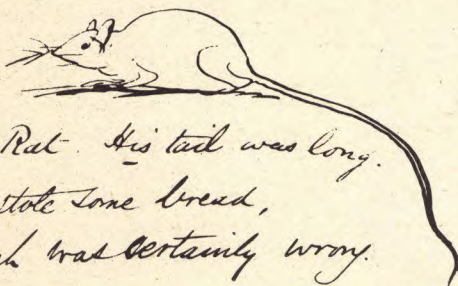 Rat. His tail was long.
stole some bread,
h was certainly wrong.